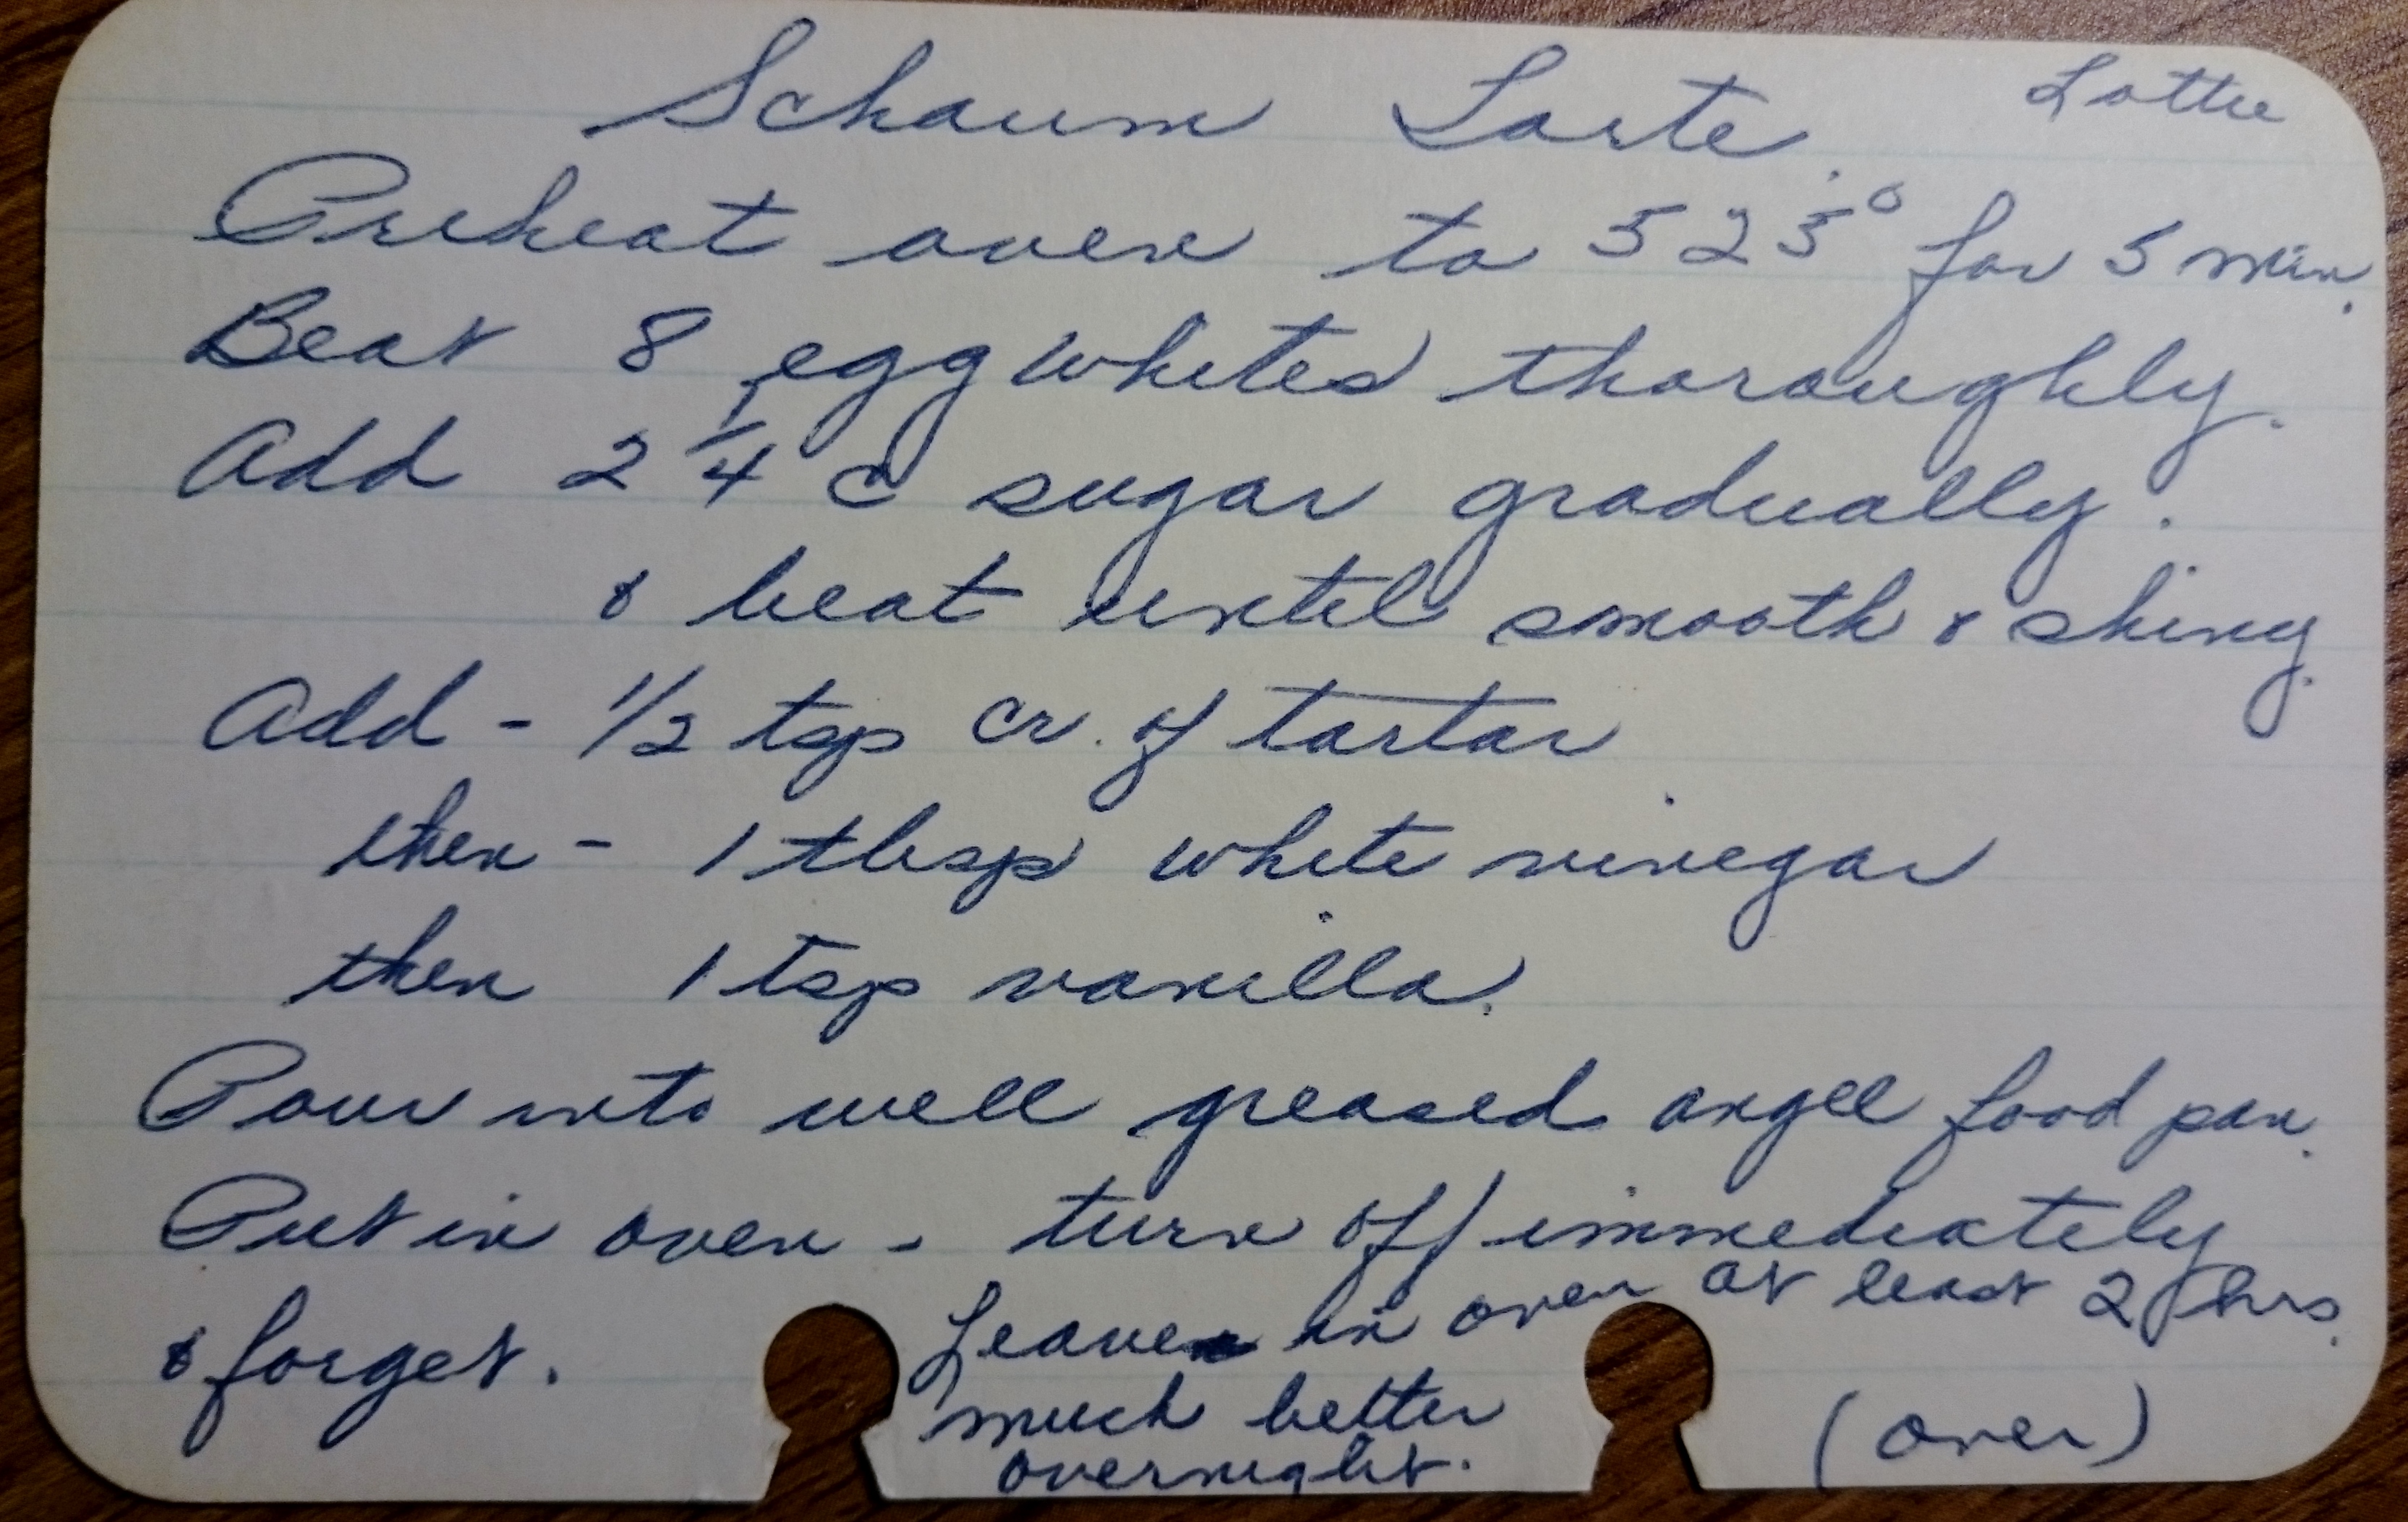 Schaum Torte.
Lottie
Preheat oven to 525° for 5 min.
Beat 8 egg whites thoroughly.
Add 2 1/4 c sugar gradually.
& beat until smooth & shiny.
Add - 1/2 tsp cr. of tartar
then - 1 tbsp white vinegar
then 1 tsp vanilla.
Pour into well greased angel food pan.
Put in oven - turn off immediately
& forget. Leave in oven at least 2 hrs.
much better
overnight.
(over)